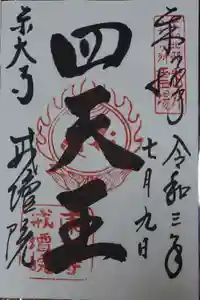 奉拝
令和三年
七月九日
四天王
東大寺
戒壇院